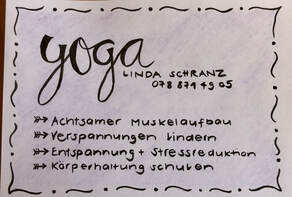 yoga
LINDA SCHRANZ
078 871 49 05
Achtsamer Muskelaufbau
Verspannungen lindern
Entspannung + Stressreduktion
Körperhaltung schulen